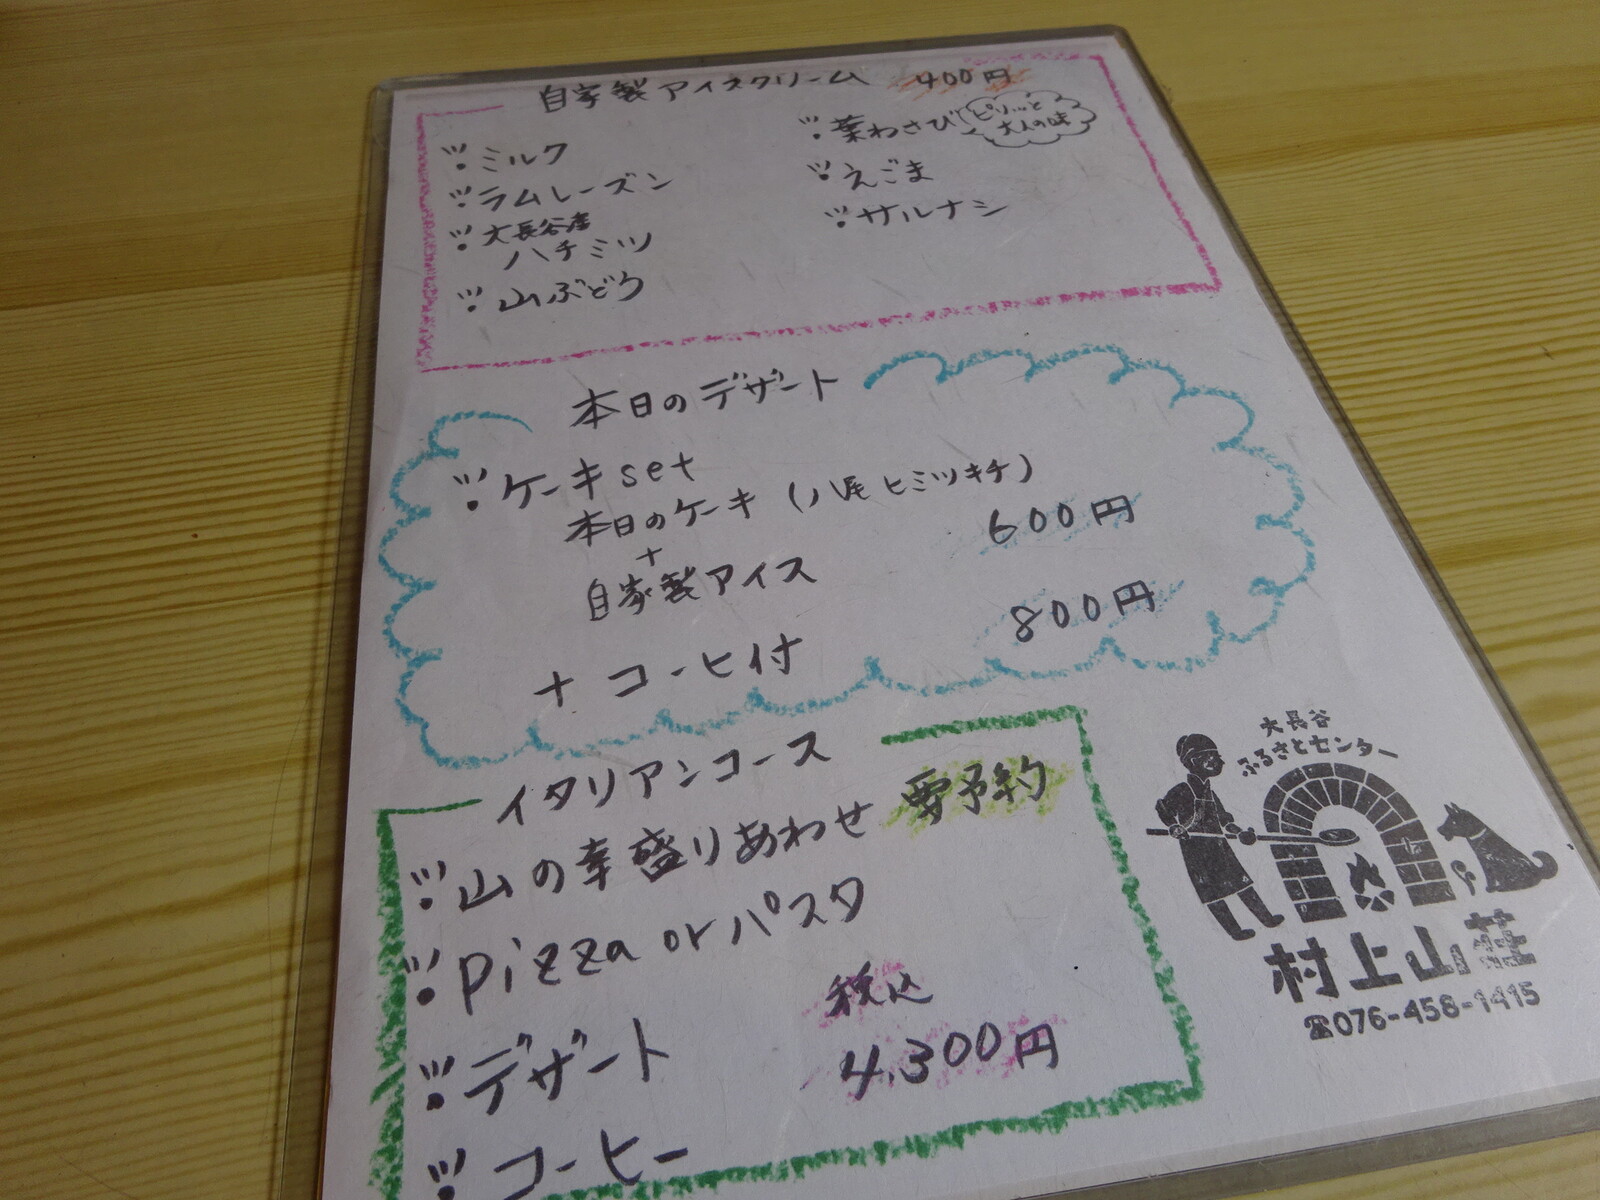 自家製アイスクリーム 400円
ミルク
ラムレーズン
大長谷産
ハチミツ
山ぶどう
葉わさび
ピリッと
大人の味
えごま
サルナシ
本日のデザート
ケーキset
本日のケーキ (八尾ヒミツキチ)
+
自家製アイス
600円
+ コーヒ付
800円
イタリアンコース
要予約
山の幸盛りあわせ
pizza or パスタ
デザート
コーヒー
税込
4,300円
大長谷
ふるさとセンター
村上山荘
☎076-458-1415